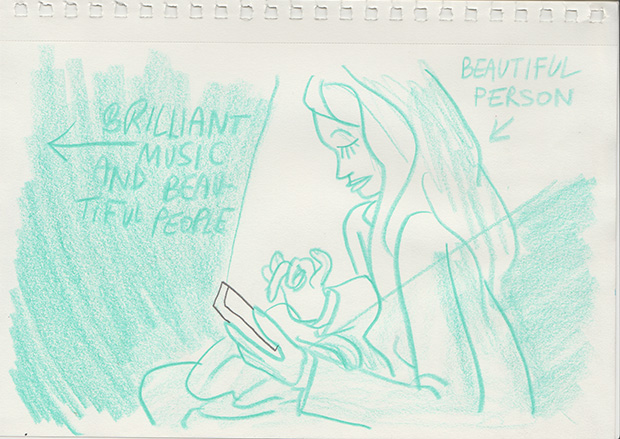 BRILLIANT
MUSIC
AND BEAU-
TIFUL PEOPLE
BEAUTIFUL
PERSON